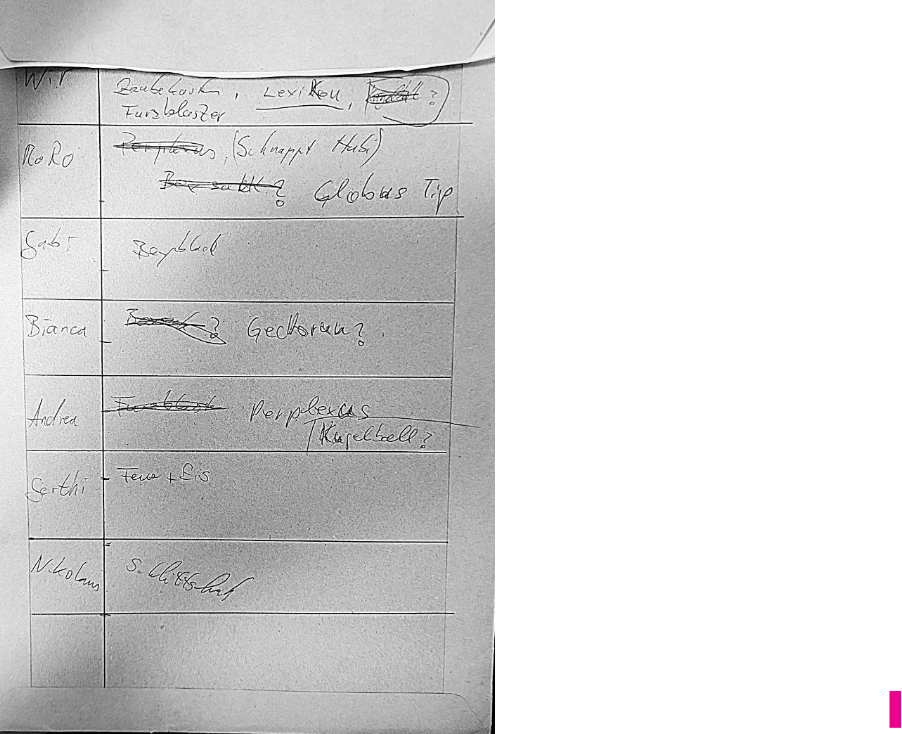 Wir Zauberkasten, Lexikon, ?
Furzblaster
RoRo Perplexus, (Schnappt Hubi)
Boxsack? Globus Tip
Gabi Beyblad
Bianca ? Geckoran?
Andrea Furzblaster Perplexus
Kugelball?
Gerthi Feuer + Eis
Nikolaus